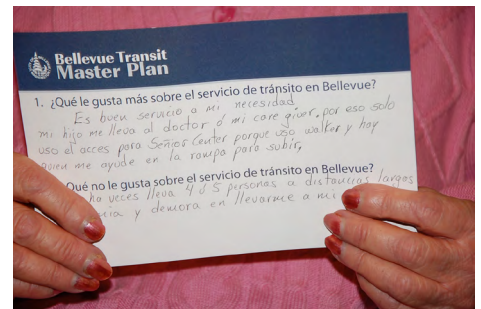 Bellevue Transit
Master Plan
1. ¿Qué le gusta más sobre el servicio de tránsito en Bellevue?
Es buen servicio a mi necesidad.
mi hijo me lleva al doctor ó mi care giver, por eso solo
uso el acces para Señios Center porque uso walker y hay
quien me ayude en la rampa para subir,
Qué no le gusta sobre el servicio de tránsito en Bellevue?
ha veces lleva 4 ó 5 personas a distancias largas
y demora en llevarme a mi